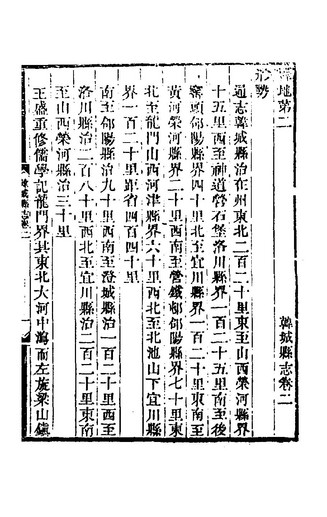 韓城縣志卷二
地第二
形勢
通志韓城縣治在州東北二百二十里東至山西榮河縣界
十五里西至神道嶺石堡洛川縣界一百二十五里南至後
窰頭郃陽縣界四十里北至宜川縣界一百二十里東南至
黃河榮河縣界二十里西南至營鐵郃陽縣界七十里東
北至龍門山西河津縣界六十里西北至北池山下宜川縣
界一百二十里距省四百四十里
南至郃陽縣治九十里西南至澄城縣治一百二十里西至
洛川縣治二百八十里西北至宜川縣治二百二十里東南
至山西榮河縣治三十里
王盛重修儒學記龍門界其東北大河中瀉而左旋梁山鎮
韓城縣志卷二
一